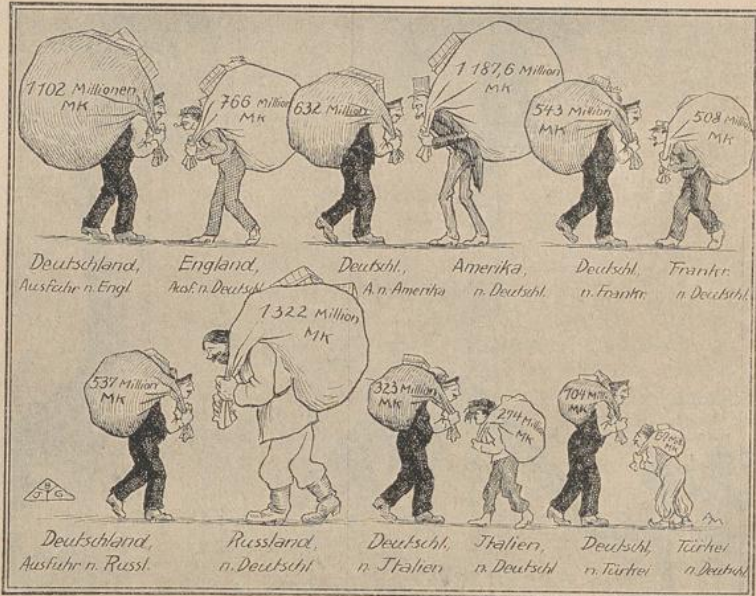 1102 Millionen
MK
766 Million
MK
632 Million
1 187,6 Million
MK
543 Million
MK
508 Million
MK
Deutschland,
Ausfuhr n. Engl.
England,
Ausf. n. Deutschl.
Deutschl.,
A. n. Amerika
Amerika,
n. Deutschl.
Deutschl,
n. Frankr.
Frankr.
n. Deutschl.
537 Million
MK
1322 Million
MK
323 Million
MK
274 Million
MK
104 Mill
MK
67 Mill
MK
B
J G
AM
Deutschland,
Ausfuhr n. Russl.
Russland,
n. Deutschl
Deutschl.,
n. Italien
Italien,
n. Deutschl
Deutschl,
n. Türkei
Türkei
n. Deutschl